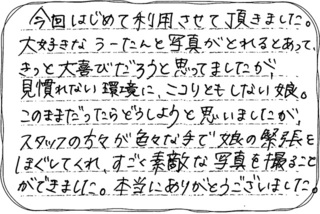 今回はじめて利用させて頂きました。
大好きなうーたんと写真がとれるとあって、
きっと大喜びだろうと思ってましたが、
見慣れない環境に、ニコリともしない娘。
このままだったらどうしようと思いましたが、
スタッフの方々が色々な手で娘の緊張を
ほぐしてくれ、すごく素敵な写真を撮ること
ができました。本当にありがとうございました。